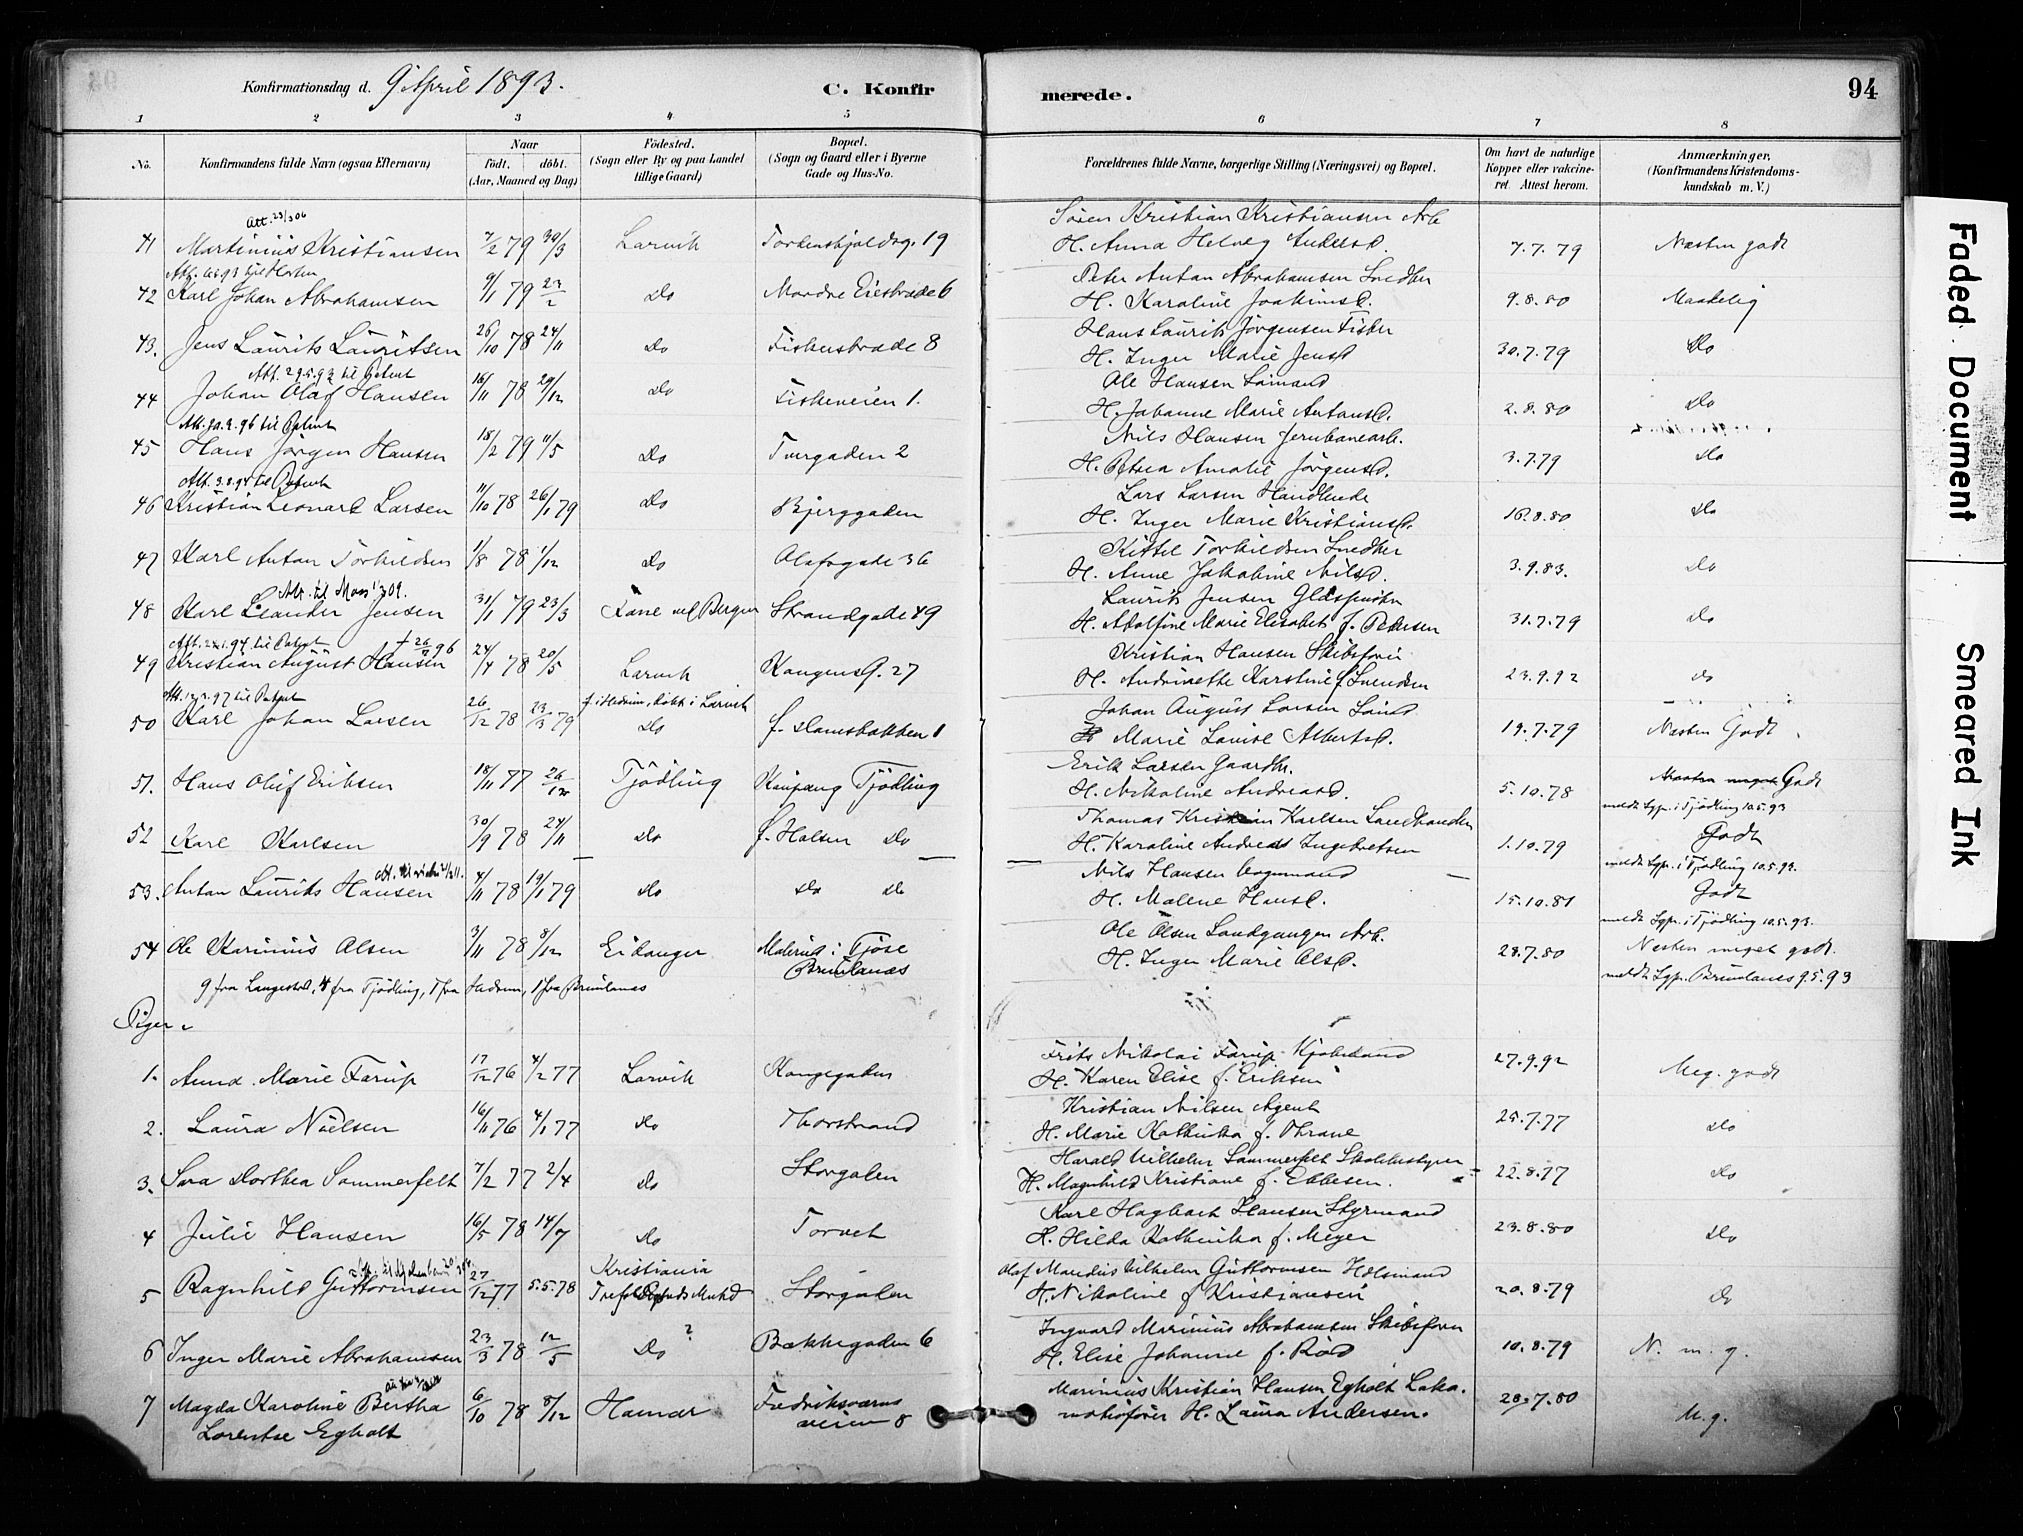 Konfirmationsdag d. 9 April 1893. C. Konfirmerede. 94
1 2 3 4 5 6 7 8
No. Konfirmandens fulde Navn (ogsaa Efternavn) Naar født. døbt. (Aar, Maaned og Dag) Fødested. (Sogn eller By og paa Landet tillige Gaard) Bopæl. (Sogn og Gaard eller i Byerne Gade og Hus-No. Forældrenes fulde Navne, borgerlige Stilling (Næringsvei) og Bopæl. Om havt de naturlige Kopper eller vakcineret. Attest herom. Anmærkninger. (Konfirmandens Kristendomskundskab m. V.)
Att. 23/3 06 Søren Kristian Kristiansen Arb
41 Martinius Kristiansen 7/2 79 30/3 Larvik Tordenskjoldsg. 19 H. Anna Helveg Andersd. 7.7.79 Næsten godt
Peter Antan Abrahamsen Snedker
42 Karl Johan Abrahamsen 9/1 79 23/2 Do Nordre 6 H. Karoline Joakimsd. 9.8.80 Maadelig
Hans Laurits Jørgensen Fisker
43. Jens Laurits Lauritsen 26/10 78 24/11 Do Fiskerstræde 8 H. Inger Marie Jensd 30.7.79 Do
Att. 29.5.93 til Patent Ole Hansen Sømand
44 Johan Olaf Hansen 16/11 78 29/12 Do Fiskeveien 1. H. Johanne Marie Antonsd. 2.8.80 Do
til Patent Nils Hansen Jernbanearb.
45 Hans Jørgen Hansen 18/2 79 11/5 Do Tvergaden 2 H. Petrea Amalie Jørgensd. 3.7.79 Do
Att. 3.8.94 til Patent Lars Larsen Handlende
46 Kristian Leonard Larsen 11/10 78 26/1 79 Do Bjerggaden H. Inger Marie Kristiansd. 16.8.80 Do
Kittel Torkildsen Snedker
47 Karl Antan Torkildsen 1/8 78 1/12 Do Olafsgade 36 H. Anne Jakobine Nilsd. 3.9.83. Do
Att. til Moss Laurits Jensen
48 Karl Leander Jensen 31/1 79 23/3 Fane ved Bergen Strandgade 49 H. Adolfine Marie Elisabet f. Pedersen 31.7.79 Do
Kristian Hansen Skibsfører
49 Kristian August Hansen 24/4 78 20/5 Larvik Kongensg. 27 H. Andrinette Karoline f Svendsen 23.9.92 do
til Patent f. i Hedrum, døbt i Larvik Johan August Larsen Sømd
50 Karl Johan Larsen 26/12 78 23/3 79 Do f. Damsbakken 1 H Marie Lovise Albertsd. 19.7.79 Næsten Godt
Erik Larsen Gaardbr.
51. Hans Oluf Eriksen 18/11 77 26/12 Tjødling Kaupang Tjødling H. Nikoline Andreasd. 5.10.78 Næsten meget Godt
meldt Sgpr. i Tjødling 10.5.93
Thomas Kristian Karlsen Landhandler
52 Karl Karlsen 30/9 78 24/11 Do f. Halsen Do H. Karoline Andrea Ingebretsen 1.10.79 Godt
meldt Sgpr. i Tjødling 10.5.93.
Nils Hansen
53. Antan Laurits Hansen 4/11 78 19/1 79 Do Do Do H. Malene Hansd. 15.10.81 Godt
meldt Sgpr. i Tjødling 10.5.93.
Ole Olsen Landgangen Arb.
54 Ole Karinius Olsen 3/11 78 8/12 Eidanger i Tjøse Brunlanæs H. Inger Marie Olsd. 28.7.80 Næsten meget godt.
9 fra Langestd, 4 fra Tjødling, 1 fra Hedrum, 1 fra Brunlanæs meldt Sgpr. Brunlanes 9.5.93
Piger.
Frits Nikolai Farup Kjøbmand
1. Anna Marie Farup 17/12 76 4/2 77 Larvik Kongegaden H. Karen Elise f. Eriksen 27.9.92 Meg. godt
Kristian Nilsen Agent
2. Laura Nielsen 16/11 76 4/1 77 Do Thorstrand H. Marie Kathinka f. Thrane 25.7.77 Do
Harald Vilhelm Sommerfelt Skolebestyrer
3. Sara Dorthea Sommerfelt 7/2 77 2/4 Do Storgaden H. Magnhild Kristiane f. Ebbesen. 22.8.77 Do
Karl Hagbart Hansen Styrmand
4 Julie Hansen 16/5 78 14/7 Do Torvet H. Hilda Kathinka f. Meyer 23.8.80 Do
Kristiania Olaf Maridius Vilhelm Guttormsen
5 Ragnhild Guttormsen 27/12 77 5.5.78 Trefoldigheds Storgaden H. Nikoline f Kristiansen 20.8.79 Do
Ingvard Marinius Abrahamsen Skibsfører
6 Inger Marie Abrahamsen 23/3 78 12/5 Do ? Bækkegaden 6 H. Elise Johanne f. Rød 10.8.79 N. m. g.
Marinius Kristian Hansen Egholt Loko-
7 Magda Karoline Bertha 6/10 78 8/12 Hamar Fredriksværns veien 8 motivfører H. Laura Andersen. 28.7.80 M.g.
Lorentse Egholt
Faded Document
Smeared Ink